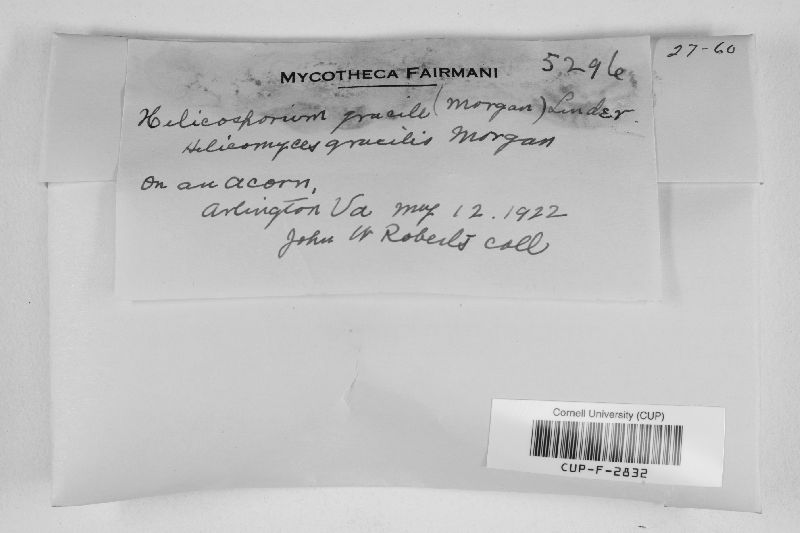 27-60
5296
MYCOTHECA FAIRMANI
Helicosporium gracile (Morgan) Linder.
Helicomyces gracilis Morgan
On an acorn,
Arlington Va May 12. 1922
John W Roberts coll
Cornell University (CUP)
CUP-F-2832